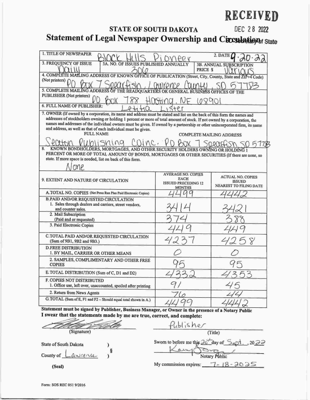 RECEIVED
DEC 28 2022
STATE OF SOUTH DAKOTA
Statement of Legal Newspaper Ownership and Circulation
of State
1. TITLE OF NEWSPAPER Black Hills Pioneer
2. DATE 9-20-22
3. FREQUENCY OF ISSUE Daily
3A. NO. OF ISSUES PUBLISHED ANNUALLY
3B. ANNUAL SUBSCRIPTION PRICE $ Various
4. COMPLETE MAILING ADDRESS OF KNOWN OFFICE OF PUBLICATION (Street, City, County, State and ZIP+4 Code) (Not printers)
PO Box 7 Spearfish / Lawrence County SD 57783
5. COMPLETE MAILING ADDRESS OF THE HEADQUARTERS OR GENERAL BUSINESS OFFICES OF THE PUBLISHER (Not printers)
PO Box 788 Hastings, NE 68901
6. FULL NAME OF PUBLISHER: Letitia Lister
7. OWNER (If owned by a corporation, its name and address must be stated and also the names and addresses of stockholders owning or holding 1 percent or more of total amount of stock. If not owned by a corporation, the names and addresses of the individual owners must be given. If owned by a partnership or other unincorporated firm, its name and address, as well as that of each individual must be given.
FULL NAME
COMPLETE MAILING ADDRESS
Seaton Publishing PO Box 7 Spearfish SD 57783
8. KNOWN BONDHOLDERS, MORTGAGEES, AND OTHER SECURITY HOLDERS OWNING OR HOLDING 1 PERCENT OR MORE OF TOTAL AMOUNT OF BONDS, MORTGAGES OR OTHER SECURITIES (If there are none, so state. If more space is needed, list on back of this form.
None
9. EXTENT AND NATURE OF CIRCULATION
AVERAGE NO. COPIES EACH ISSUED PRECEEDING 12 MONTHS
ACTUAL NO. COPIES ISSUED NEAREST TO FILING DATE
A. TOTAL NO. COPIES (Net Press Run Plus Paid Electronic Copies) 4499 4442
B. PAID AND/OR REQUESTED CIRCULATION
1. Sales through dealers and carriers, street vendors, and counter sales. 3414 3421
2. Mail Subscription (Paid and or requested) 374 388
3. Paid Electronic Copies 449 449
C. TOTAL PAID AND/OR REQUESTED CIRCULATION (Sum of 9B1, 9B2 and 9B3.) 4237 4258
D. FREE DISTRIBUTION
1. BY MAIL, CARRIER OR OTHER MEANS 0 0
2. SAMPLES, COMPLIMENTARY AND OTHER FREE COPIES 95 95
E. TOTAL DISTRIBUTION (Sum of C, D1 and D2) 4332 4353
F. COPIES NOT DISTRIBUTED
1. Office use, left over, unaccounted, spoiled after printing 91 45
2. Return from News Agents 76 44
G. TOTAL (Sum of E, F1 and F2 - Should equal total shown in A.) 4499 4442
Statement must be signed by Publisher, Business Manager, or Owner in the presence of a Notary Public
I swear that the statements made by me are true, correct, and complete:
Publisher
(Signature)
(Title)
State of South Dakota )
County of Lawrence ) §
Sworn to before me this day of Sept. 2022
Notary Public
(Seal)
My commission expires: 7-18-2025
Form: SOS REC 051 9/2016